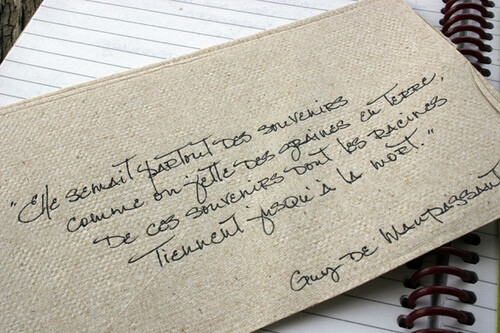 "Elle semait partout des souvenirs
comme on jette des graines en terre,
de ces souvenirs dont les racines
tiennent jusqu'à la mort."
Guy de Maupassant